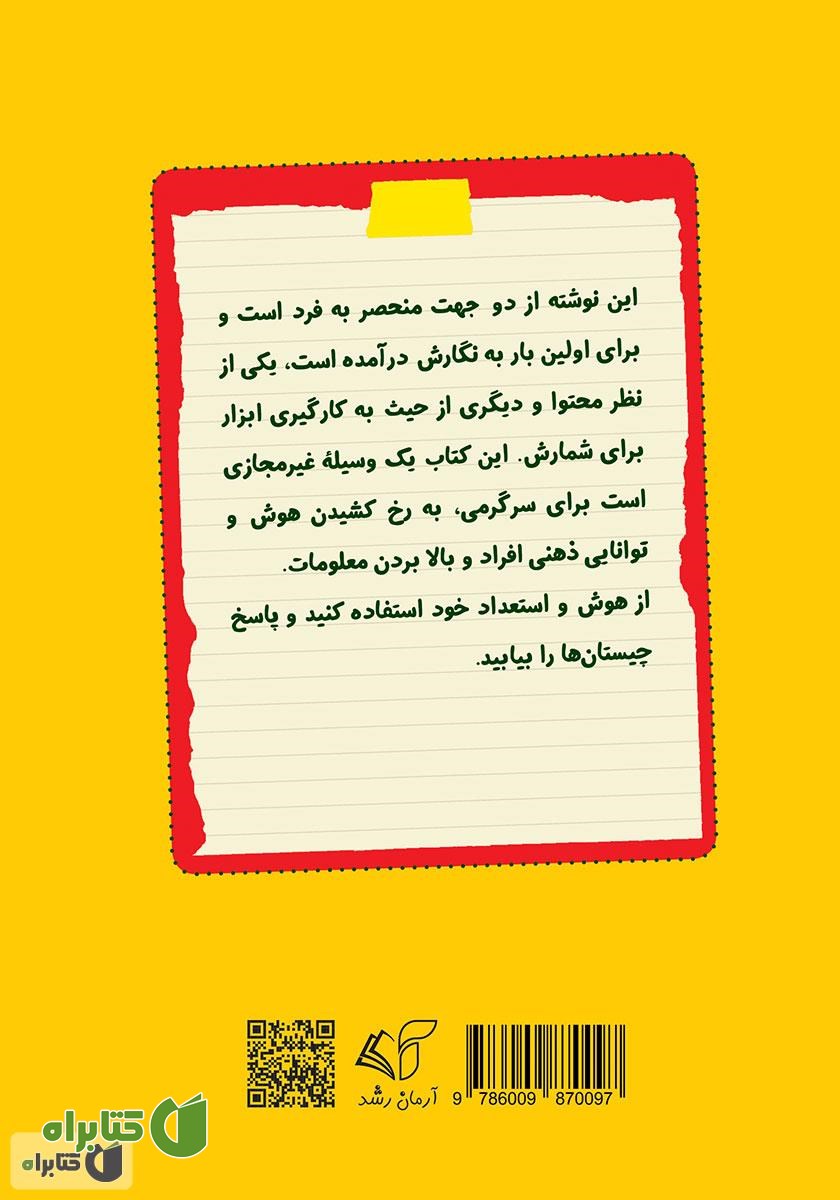 این نوشته از دو جهت منحصر به فرد است و
برای اولین بار به نگارش درآمده است، یکی از
نظر محتوا و دیگری از حیث به کارگیری ابزار
برای شمارش. این کتاب یک وسیلهٔ غیرمجازی
است برای سرگرمی، به رخ کشیدن هوش و
توانایی ذهنی افراد و بالا بردن معلومات.
از هوش و استعداد خود استفاده کنید و پاسخ
چیستان‌ها را بیابید.
آرمان رشد
9 786009 870097
کتابراه
کتابراه